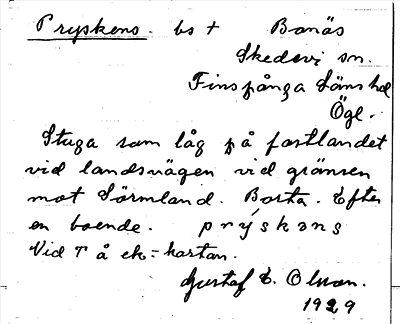 Pryskens. bs + Banäs
Skedevi sn.
Finspånga läns hd
Ögl.
Stuga som låg på fastlandet
vid landsvägen vid gränsen
mot Sörmland. Borta. Efter
en boende. prýskəns
Vid T å ek=kartan.
Gustaf E. Olson.
1929